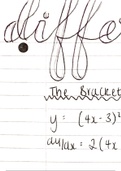 diffe
The Bracket
y = (4x-3)²
dy/dx = 2(4x